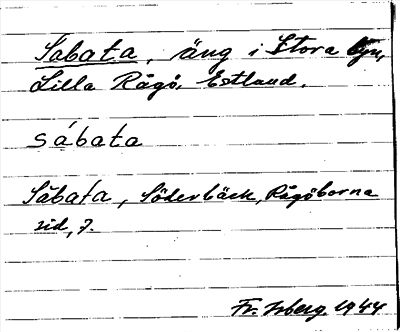 Sabata, äng i Stora byn,
Lilla Rågö, Estland.
sábata
Såbata, Söderbäck, Rågöborna
sid, 7.
Fr. Isberg 1944